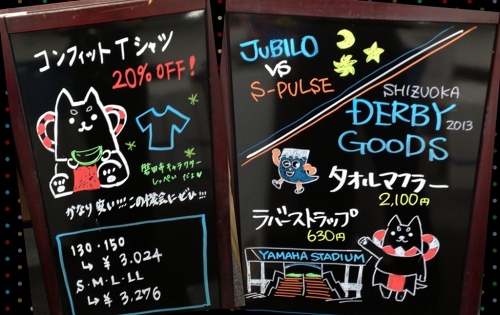 コンフィットTシャツ
20% OFF!
磐田市キャラクター
しっぺい だよ
かなり安い!!!この機会にぜひ!!!
130・150
↳ ¥3.024
S・M・L・LL
↳ ¥3.276
JUBILO
VS
S-PULSE
SHIZUOKA
DERBY
2013
GOODS
タオルマフラー
2,100円
ラバーストラップ
630円
YAMAHA STADIUM